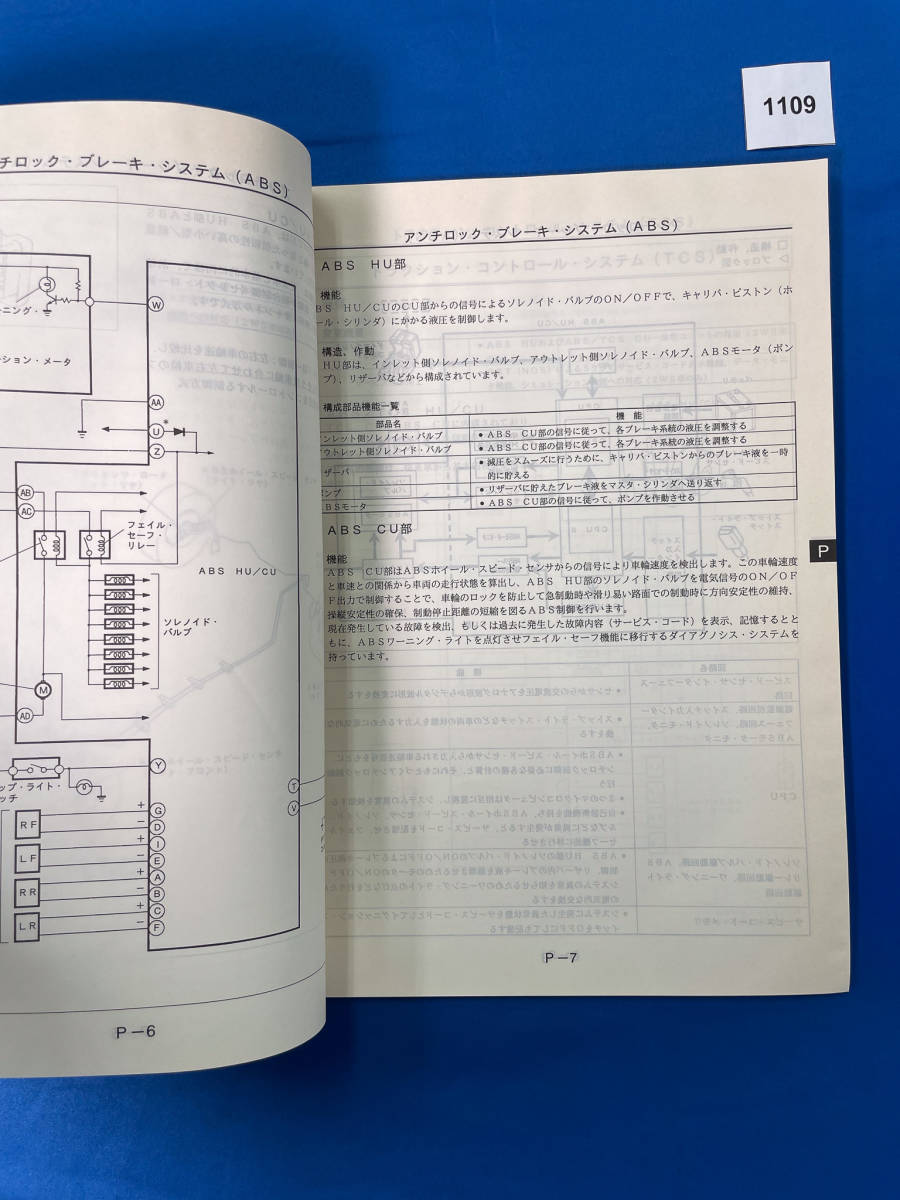 1109
チロック・ブレーキ・システム（ABS）
ーニング・
ーション・メータ
W
AA
U*
Z
AB
AC
フェイル・
セーフ・
リレー
ABS HU/CU
ソレノイド・
バルブ
M
AD
Y
ップ・ライト・
ッチ
T
V
RF
LF
RR
LR
+ G
− D
+ I
− E
+ A
− B
+ C
− F
P－6
アンチロック・ブレーキ・システム（ABS）
ABS HU部
機能
BS HU／CUのCU部からの信号によるソレノイド・バルブのON／OFFで、キャリパ・ピストン（ホ
ール・シリンダ）にかかる液圧を制御します。
構造、作動
HU部は、インレット側ソレノイド・バルブ、アウトレット側ソレノイド・バルブ、ABSモータ（ポン
プ）、リザーバなどから構成されています。
構成部品機能一覧
部品名 機 能
ンレット側ソレノイド・バルブ ●ABS CU部の信号に従って、各ブレーキ系統の液圧を調整する
ウトレット側ソレノイド・バルブ ●ABS CU部の信号に従って、各ブレーキ系統の液圧を調整する
ザーバ ●減圧をスムーズに行うために、キャリパ・ピストンからのブレーキ液を一時
的に貯える
ンプ ●リザーバに貯えたブレーキ液をマスタ・シリンダへ送り返す
BSモータ ●ABS CU部の信号に従って、ポンプを作動させる
ABS CU部
機能
ABS CU部はABSホイール・スピード・センサからの信号により車輪速度を検出します。この車輪速度
と車速との関係から車両の走行状態を算出し、ABS HU部のソレノイド・バルブを電気信号のON／OF
F出力で制御することで、車輪のロックを防止して急制動時や滑り易い路面での制動時に方向安定性の維持、
操縦安定性の確保、制動停止距離の短縮を図るABS制御を行います。
現在発生している故障を検出、もしくは過去に発生した故障内容（サービス・コード）を表示、記憶するとと
もに、ABSワーニング・ライトを点灯させフェイル・セーフ機能に移行するダイアグノシス・システムを
持っています。
P
P－7